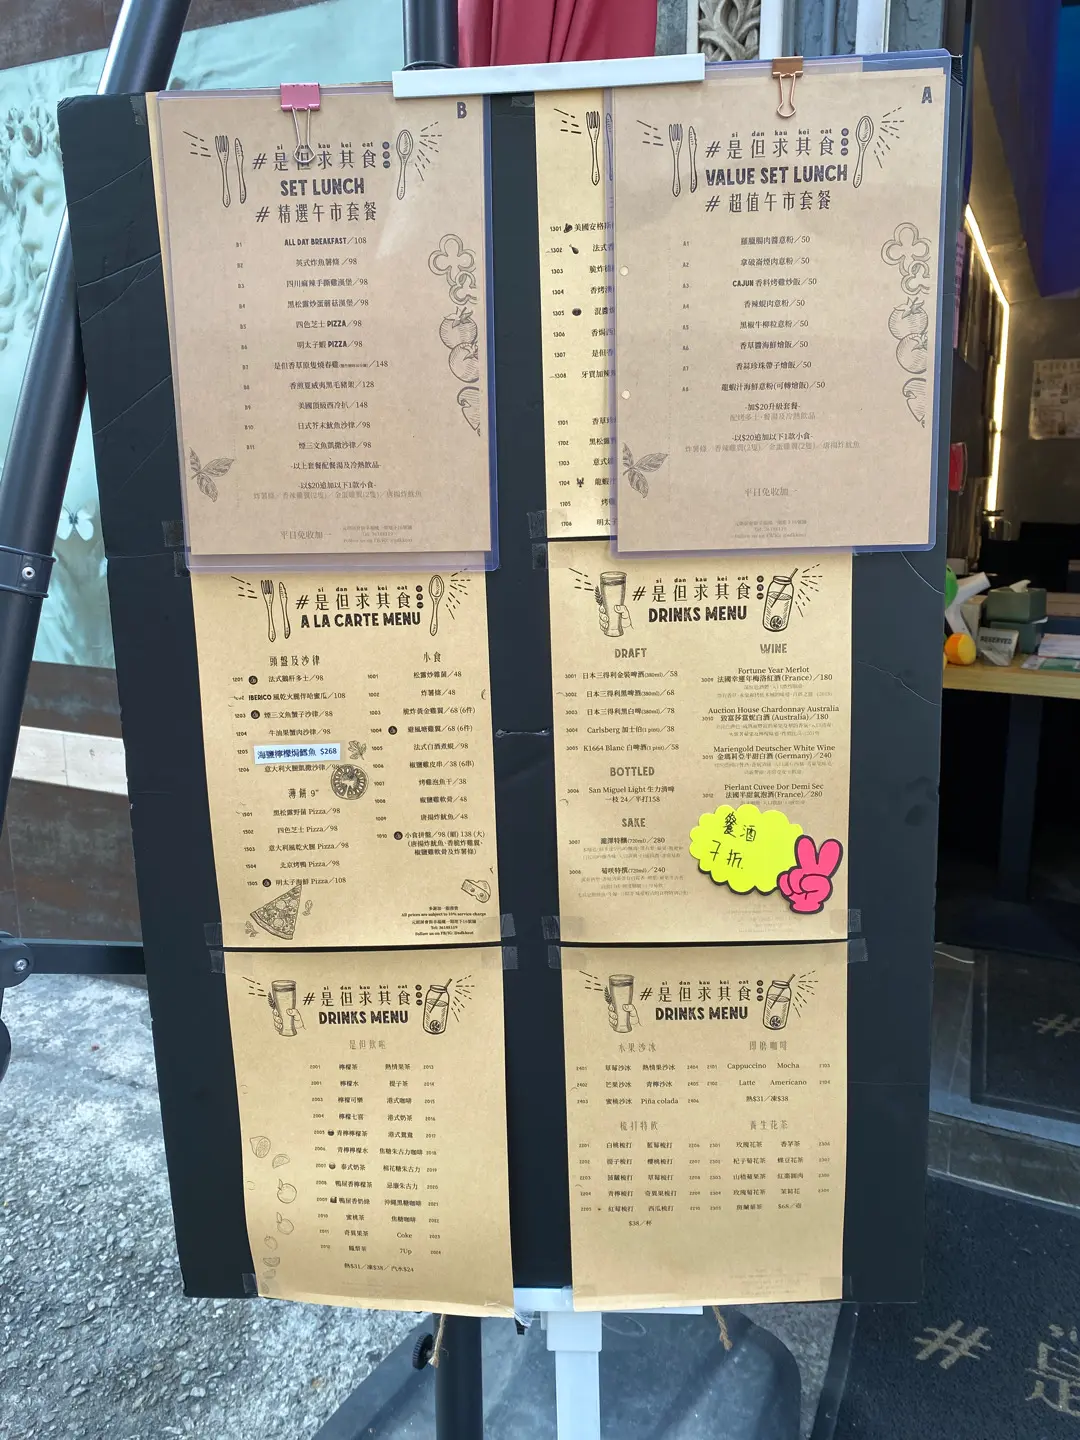 B
si dan kau kei eat
#是但求其食
SET LUNCH
#精選午市套餐
B1 ALL DAY BREAKFAST／108
B2 英式炸魚薯條／98
B3 四川麻辣手撕雞漢堡／98
B4 黑松露炒蛋蘑菇漢堡／98
B5 四色芝士 PIZZA／98
B6 明太子蝦 PIZZA／98
B7 是但香草原隻燒春雞／148
B8 香煎夏威夷黑毛豬扒／128
B9 美國頂級西冷扒／148
B10 日式芥末魷魚沙律／98
B11 煙三文魚凱撒沙律／98
-以上套餐配餐湯及冷熱飲品-
-以$20追加以下1款小食-
炸薯條／香辣雞翼(2隻)／金蛋雞翼(2隻)／唐揚炸魷魚
平日免收加一
A
si dan kau kei eat
#是但求其食
VALUE SET LUNCH
#超值午市套餐
A1 雞臘腸肉醬意粉／50
A2 拿破崙煙肉意粉／50
A3 CAJUN 香料烤雞炒飯／50
A4 香辣蜆肉意粉／50
A5 黑椒牛柳粒意粉／50
A6 香草醬海鮮燴飯／50
A7 香蒜珍珠帶子燴飯／50
A8 龍蝦汁海鮮意粉(可轉燴飯)／50
-加$20升級套餐-
配烤多士、餐湯及冷熱飲品
-以$20追加以下1款小食-
炸薯條／香辣雞翼(2隻)／金蛋雞翼(2隻)／唐揚炸魷魚
平日免收加一
1301 美國安格斯
1302 法式香
1303 脆炸
1304 香烤
1305 混醬
1306 香焗西
1307 是但香
1308 牙買加辣
1701 香草
1702 黑松露
1703 意式
1704 龍蝦
1705 烤
1706 明太子
si dan kau kei eat
#是但求其食
A LA CARTE MENU
頭盤及沙律
1201 法式鵝肝多士／98
IBERICO 風乾火腿伴哈蜜瓜／108
1203 煙三文魚蟹子沙律／88
1204 牛油果蟹肉沙律／98
1205 海鹽檸檬焗鱈魚 $268
1206 意大利火腿凱撒沙律／98
薄餅 9"
1501 黑松露野菌 Pizza／98
1502 四色芝士 Pizza／98
1503 意大利風乾火腿 Pizza／98
1504 北京烤鴨 Pizza／98
1505 明太子海鮮 Pizza／108
小食
1001 松露炒雜菌／48
1002 炸薯條／48
1003 脆炸黃金雞翼／68 (6件)
1004 避風塘雞翼／68 (6件)
1005 法式白酒煮蜆／98
1006 椒鹽雞皮串／38 (6串)
1007 烤雞泡魚干／38
1008 椒鹽雞軟骨／48
1009 唐揚炸魷魚／48
1010 小食拼盤／98 (細) 138 (大)
(唐揚炸魷魚‧香脆炸雞翼‧
椒鹽雞軟骨及炸薯條)
多謝加一服務費
All prices are subject to 10% service charge
Tel: 36180519
si dan kau kei eat
#是但求其食
DRINKS MENU
DRAFT
3001 日本三得利金裝啤酒(380ml)／58
3002 日本三得利黑啤酒(380ml)／68
3003 日本三得利黑白啤(380ml)／78
3004 Carlsberg 加士伯(1 pint)／38
3005 K1664 Blanc 白啤酒(1 pint)／58
BOTTLED
3006 San Miguel Light 生力清啤
一枝 24／半打158
SAKE
3007 龍澤特釀(720ml)／280
3008 菊咲特撰(720ml)／240
WINE
Fortune Year Merlot
3009 法國幸運年梅洛紅酒(France)／180
Auction House Chardonnay Australia
3010 致富莎當妮白酒 (Australia)／180
Mariengold Deutscher White Wine
3011 金瑪利亞半甜白酒 (Germany)／240
Pierlant Cuvee Dor Demi Sec
3012 法國半甜氣泡酒(France)／280
餐酒
7折
si dan kau kei eat
#是但求其食
DRINKS MENU
是但飲啦
2001 檸檬茶 熱情果茶 2013
檸檬水 提子茶
2003 檸檬可樂 港式咖啡 2015
2004 檸檬七喜 港式奶茶 2016
2005 青檸檸檬茶 港式鴛鴦 2017
2006 青檸檸檬水 焦糖朱古力咖啡 2018
2007 泰式奶茶 棉花糖朱古力 2019
2008 鴨屎香檸檬茶 忌廉朱古力 2020
2009 鴨屎香奶綠 沖繩黑糖咖啡 2021
2010 蜜桃茶 焦糖咖啡 2022
2011 奇異果茶 Coke 2023
2012 鳳梨茶 7Up 2024
熱$31／凍$38／汽水$24
si dan kau kei eat
#是但求其食
DRINKS MENU
水果沙冰
2401 草莓沙冰 熱情果沙冰 2404
2402 芒果沙冰 青檸沙冰 2405
2403 蜜桃沙冰 Piña colada 2406
即磨咖啡
2101 Cappuccino Mocha 2103
2102 Latte Americano 2104
熱$31／凍$38
梳打特飲
2201 白桃梳打 藍莓梳打 2206
2202 提子梳打 櫻桃梳打 2207
2203 菠蘿梳打 草莓梳打 2208
2204 青檸梳打 奇異果梳打 2209
2205 紅莓梳打 西瓜梳打 2210
$38／杯
養生花茶
2301 玫瑰花茶 香茅茶 2306
2302 杞子菊花茶 蝶豆花茶
2303 山楂蘋果茶 紅棗圓肉
2304 玫瑰菊花茶 茉莉花
2305 薰衣草茶 $68／壺
RESERVED
#
#